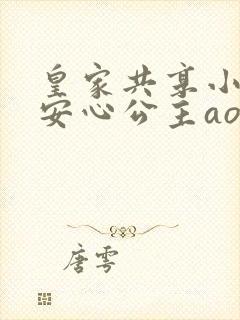 皇家共享小
安心公主ao
唐雩